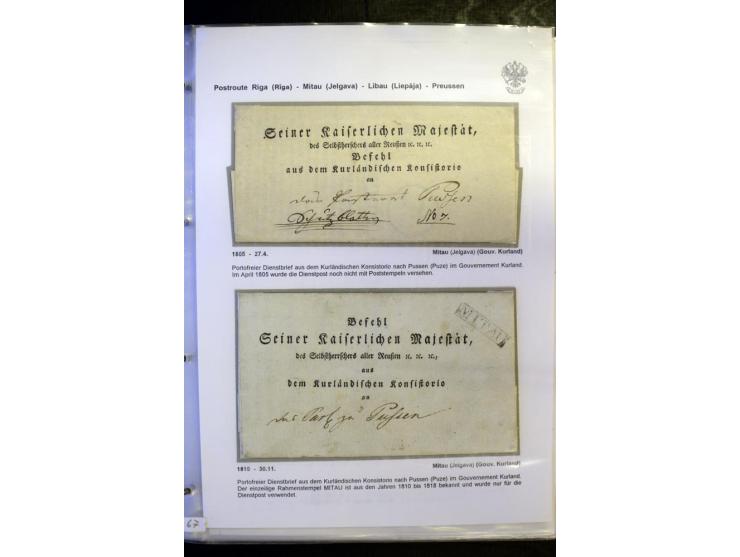 Postroute Riga (Rīga) - Mitau (Jelgava) - Libau (Liepāja) - Preussen
Seiner Kaiserlichen Majestät,
des Selbstherschers aller Reußen ꝛc. ꝛc. ꝛc.
Befehl
aus dem Kurländischen Konsistorio
an
Pussen
No 7.
1805 - 27.4.
Mitau (Jelgava) (Gouv. Kurland)
Portofreier Dienstbrief aus dem Kurländischen Konsistorio nach Pussen (Puze) im Gouvernement Kurland.
Im April 1805 wurde die Dienstpost noch nicht mit Poststempeln versehen.
MITAU
Befehl
Seiner Kaiserlichen Majestät,
des Selbstherrschers aller Reußen ꝛc. ꝛc. ꝛc.,
aus
dem Kurländischen Konsistorio
an
Pussen
1810 - 30.11.
Mitau (Jelgava) (Gouv. Kurland)
Portofreier Dienstbrief aus dem Kurländischen Konsistorio nach Pussen (Puze) im Gouvernement Kurland.
Der einzeilige Rahmenstempel MITAU ist aus den Jahren 1810 bis 1818 bekannt und wurde nur für die
Dienstpost verwendet.
67